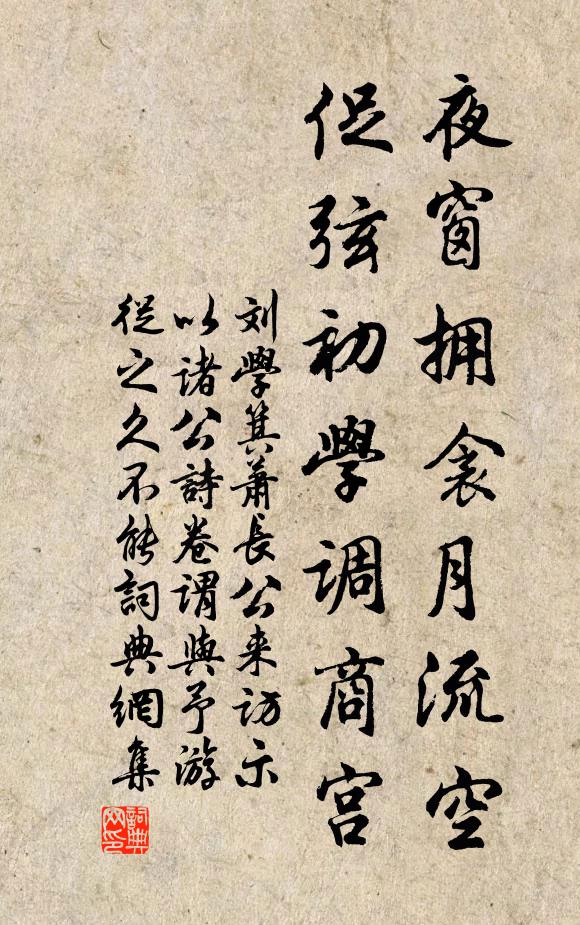 夜窗拥衾月流空
促弦初學调商宫
刘學箕萧長公来访示
以诸公詩卷谓與予游
從之久不能詞典網集
詞典网印